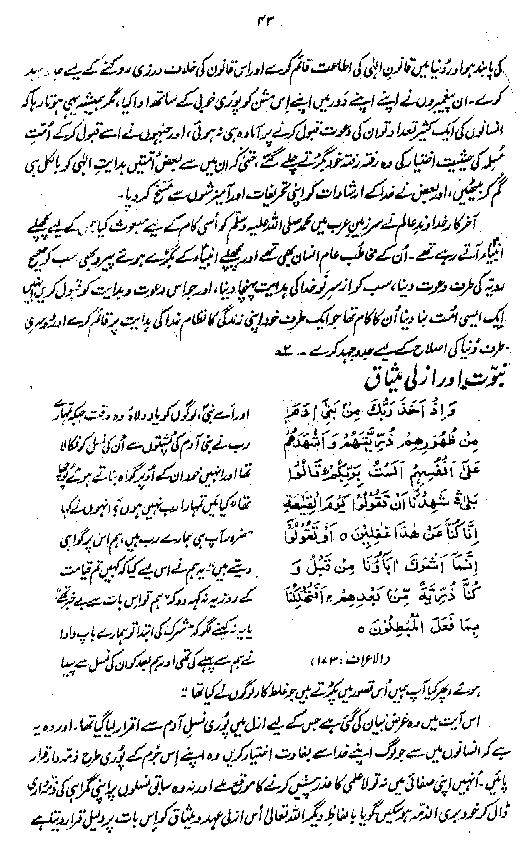 ۴۳
کی پابند ہو اور دُنیا میں قانونِ الٰہی کی اطاعت قائم کرنے اور اس قانون کی خلاف ورزی روکنے کے لیے جدوجہد
کرے۔ ان پیغمبروں نے اپنے اپنے دَور میں اپنے اِس مشن کو پوری خوبی کے ساتھ ادا کیا، مگر ہمیشہ یہی ہوتا رہا کہ
انسانوں کی ایک کثیر تعداد تو ان کی دعوت قبول کرنے پر آمادہ ہی نہ ہوئی، اور جنہوں نے اسے قبول کر کے اُمتِ
مُسلمہ کی حیثیت اختیار کی وہ رفتہ رفتہ خود بگڑتے چلے گئے، حتٰی کہ ان میں سے بعض اُمتیں ہدایتِ الٰہی کو بالکل ہی
گم کر بیٹھیں، اور بعض نے خدا کے ارشادات کو اپنی تحریفات اور آمیزشوں سے مسخ کر دیا۔
آخر کار خداوندِ عالم نے سرزمینِ عرب میں محمد صلی اللہ علیہ وسلم کو اُسی کام کے لیے مبعوث کیا جس کے لیے پچھلے
انبیاء آتے رہے تھے۔ اُن کے مخاطب عام انسان بھی تھے اور پچھلے انبیاء کے بگڑے ہوئے پیرو بھی سب کو صحیح
رویّہ کی طرف دعوت دینا، سب کو از سرِ نو خدا کی ہدایت پہنچا دینا، اور جو اس دعوت و ہدایت کو قبول کریں انہیں
ایک ایسی اُمت بنا دینا اُن کا کام تھا جو ایک طرف خود اپنی زندگی کا نظام خدا کی ہدایت پر قائم کرے اور دُوسری
طرف دُنیا کی اصلاح کے لیے جدوجہد کرے۔
نبوّت اور ازلی میثاق
وَإِذْ أَخَذَ رَبُّكَ مِنْ بَنِي آدَمَ
مِنْ ظُهُورِهِمْ ذُرِّيَّتَهُمْ وَأَشْهَدَهُمْ
عَلَىٰ أَنْفُسِهِمْ أَلَسْتُ بِرَبِّكُمْ قَالُوا
بَلَىٰ شَهِدْنَا أَنْ تَقُولُوا يَوْمَ الْقِيَٰمَةِ
إِنَّا كُنَّا عَنْ هَٰذَا غَٰفِلِينَ ۝ أَوْ تَقُولُوا
إِنَّمَا أَشْرَكَ آبَاؤُنَا مِنْ قَبْلُ وَ
كُنَّا ذُرِّيَّةً مِنْ بَعْدِهِمْ أَفَتُهْلِكُنَا
بِمَا فَعَلَ الْمُبْطِلُونَ ۝
(الاعراف: ۱۷۳)
اور اے نبی، لوگوں کو یاد دلاؤ وہ وقت جبکہ تمہارے
رب نے بنی آدم کی پُشتوں سے اُن کی نسل کو نکالا
تھا اور انہیں خود ان کے اُوپر گواہ بناتے ہوئے پوچھا
تھا ”کیا میں تمہارا رب نہیں ہوں؟ انہوں نے کہا
”ضرور آپ ہی ہمارے رب ہیں، ہم اس پر گواہی
دیتے ہیں“ یہ ہم نے اس لیے کیا کہ کہیں تم قیامت
کے روز یہ نہ کہہ دو کہ ”ہم تو اس بات سے بے خبر تھے“
یا یہ نہ کہنے لگو کہ ”شرک کی ابتدا تو ہمارے باپ دادا
نے ہم سے پہلے کی تھی اور ہم بعد کو ان کی نسل سے پیدا
ہوئے پھر کیا آپ ہمیں اُس قصور میں پکڑتے ہیں جو غلط کار لوگوں نے کیا تھا“
اس آیت میں وہ غرض بیان کی گئی ہے جس کے لیے ازل میں پُوری نسلِ آدم سے اقرار لیا گیا تھا۔ اور وہ یہ
ہے کہ انسانوں میں سے جو لوگ اپنے خدا سے بغاوت اختیار کریں وہ اپنے اِس جُرم کے پُوری طرح ذمّہ دار قرار
پائیں۔ اُنہیں اپنی صفائی میں نہ تو لاعلمی کا عذر پیش کرنے کا موقع ملے اور نہ وہ سابق نسلوں پر اپنی گمراہی کی ذمّہ داری
ڈال کر خود بری الذمّہ ہو سکیں گویا بالفاظِ دیگر اللہ تعالٰی اُس ازلی عہد و میثاق کو اِس بات پر دلیل قرار دیتا ہے